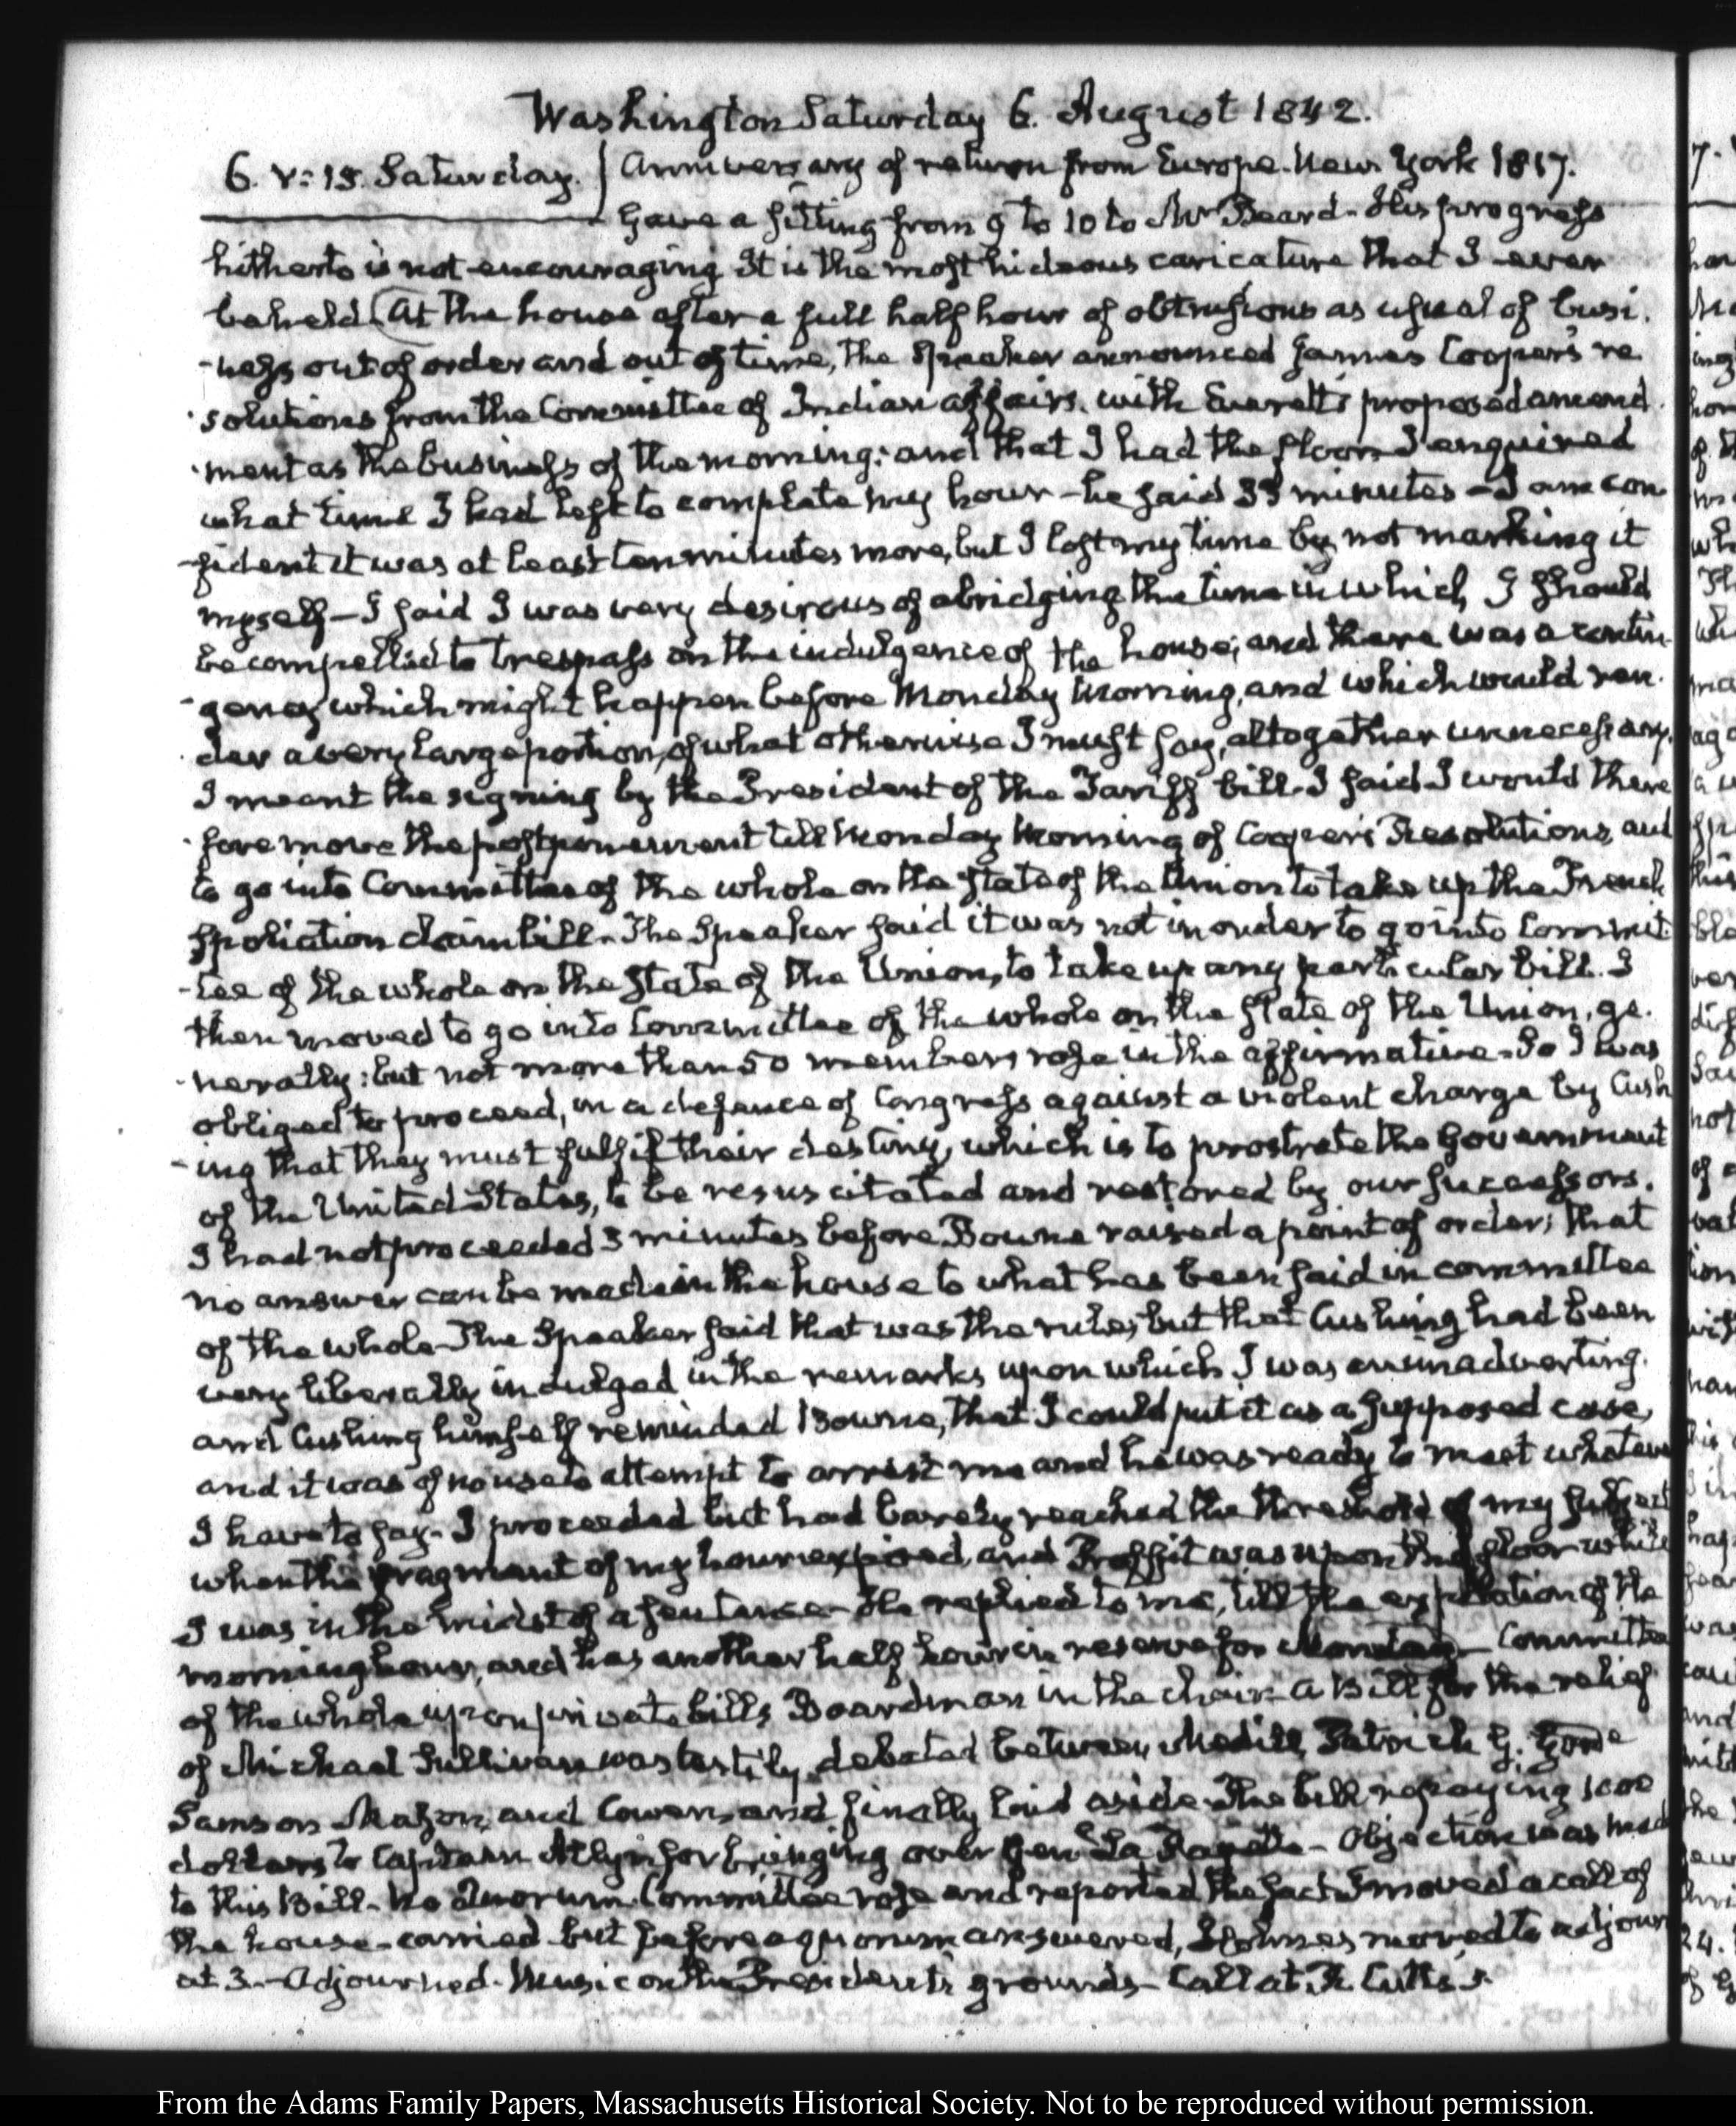 Washington Saturday 6. August 1842.
6. V:15. Saturday. Anniversary of return from Europe. New York 1817.
Gave a sitting from 9 to 10 to Mr Beard - His progress
hitherto is not encouraging It is the most hideous caricature that I ever
beheld (At the house after a full half hour of obtrusions as usual of busi.
-ness out of order and out of time, the Speaker announced James Cooper's re
-solutions from the Committee of Indian affairs, with Everett's proposed amend.
-ment as the business of the morning: and that I had the floor I enquired
what time I had left to complete my hour - he said 33 minutes - I am con
-fident it was at least ten minutes more, but I lost my time by not marking it
myself - I said I was very desirous of abridging the time in which I should
be compelled to trespass on the indulgence of the house; and there was a contin-
-gency which might happen before Monday Morning, and which would ren.
der a very large portion, of what otherwise I must say, altogether unnecessary.
I meant the signing by the President of the Tariff bill. I said I would there
-fore move the postponement till Monday Morning of Cooper's Resolutions, and
to go into Committee of the whole on the State of the Union to take up the French
Spoliation claim bill - The Speaker said it was not in order to go into Commit
-tee of the whole on the State of the Union, to take up any particular bill. I
then moved to go into Committee of the whole on the State of the Union, ge.
-nerally: but not more than 50 members rose in the affirmative - So I was
obliged to proceed, in a defence of Congress against a violent charge by Cush
-ing that they must fulfil their destiny, which is to prostrate the Government
of the United States, to be resuscitated and restored by our successors.
I had not proceeded 3 minutes before Bowne raised a point of order; that
no answer can be made in the house to what has been said in committee
of the whole - The Speaker said that was the rule, but that Cushing had been
very liberally indulged in the remarks upon which I was animadverting.
and Cushing himself reminded Bowne, that I could put it as a supposed case,
and it was of no use to attempt to arrest me and he was ready to meet whatever
I have to say - I proceeded but had barely reached the threshold of my subject
when the fragment of my hour expired, and Proffit was upon the floor while
I was in the midst of a sentence - He replied to me, till the expiration of the
morning hour, and has another half hour in reserve for Monday - Committee
of the whole upon private bills, Boardman in the chair - A Bill for the relief
of Michael Sullivan was testily debated between Medill, Patrick G. Goode
Samson Mason, and Cowen, and finally laid aside - The bill repaying 1000
dollars to Captain Allyn for bringing over Genl La Fayette - Objection was made
to this Bill - No Quorum. Committee rose and reported the fact I moved a call of
the house - carried but before a quorum answered, Holmes moved to adjourn
at 3 - Adjourned - Music on the President's grounds - Call at R. Cutts's
From the Adams Family Papers, Massachusetts Historical Society. Not to be reproduced without permission.